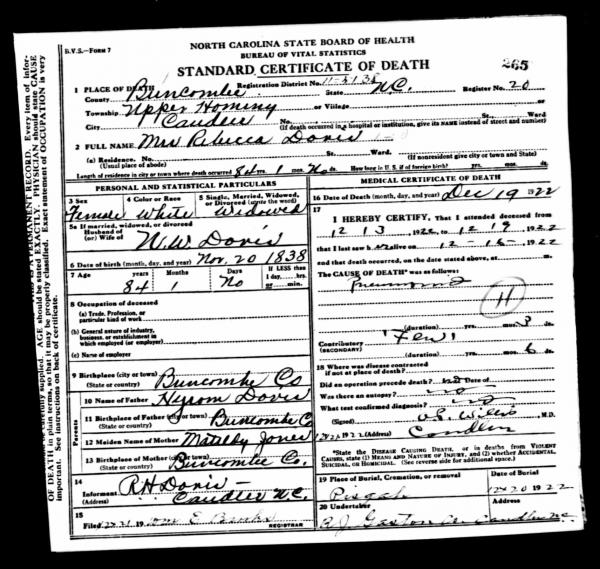 B.V.S.—FORM 7
NORTH CAROLINA STATE BOARD OF HEALTH
BUREAU OF VITAL STATISTICS
STANDARD CERTIFICATE OF DEATH
265
1 PLACE OF DEATH
Registration District No.
County Buncombe State N.C. Register No. 20
Township Upper Hominy or Village or
City Candler No. St., Ward
(If death occurred in a hospital or institution, give its NAME instead of street and number)
2 FULL NAME Mrs Rebecca Davis
(a) Residence. No. St., Ward.
(Usual place of abode) (If nonresident give city or town and State)
Length of residence in city or town where death occurred 84 yrs. 1 mos. No ds. How long in U. S. if of foreign birth? yrs. mos. ds.
PERSONAL AND STATISTICAL PARTICULARS
3 Sex 4 Color or Race 5 Single, Married, Widowed, or Divorced (write the word)
Female White Widowed
5a If married, widowed, or divorced
Husband of
(or) Wife of N.W. Davis
6 Date of birth (month, day, and year) Nov. 20 1838
7 Age years Months Days If LESS than
1 day, hrs.
or min.
84 1 No
8 Occupation of deceased
(a) Trade, Profession, or
particular kind of work
(b) General nature of industry,
business, or establishment in
which employed (or employer)
(c) Name of employer
9 Birthplace (city or town) Buncombe Co
(State or country)
Parents
10 Name of Father Hyrom Davis
11 Birthplace of Father (city or town) Buncombe C
(State or country)
12 Maiden Name of Mother Jones
13 Birthplace of Mother (city or town) Buncombe Co.
(State or country)
14
Informant R H Davis
(Address) Candler N.C.
15
Filed 19 E Banks
REGISTRAR
MEDICAL CERTIFICATE OF DEATH
16 Date of Death (month, day, and year) Dec 19 1922
17
I HEREBY CERTIFY, That I attended deceased from
12 13, 1922, to 12 19, 1922
that I last saw alive on 12-15-1922
and that death occurred, on the date stated above, at m.
The CAUSE OF DEATH* was as follows:
Pneumonia
H
(duration) yrs. mos. 3 ds.
Contributory
(SECONDARY)
(duration) yrs. mos. 6 ds.
18 Where was disease contracted
if not at place of death?
Did an operation precede death? no Date of
Was there an autopsy? no
What test confirmed diagnosis? no
(Signed) Willis M.D.
1922 (Address) Candler
*State the DISEASE CAUSING DEATH, or in deaths from VIOLENT
CAUSES, state (1) MEANS AND NATURE OF INJURY, and (2) whether ACCIDENTAL,
SUICIDAL, or HOMICIDAL. (See reverse side for additional space.)
19 Place of Burial, Cremation, or removal Date of Burial
Pisgah 12 20 1922
20 Undertaker Address
R J Gaston Candler N.C.
IS A PERMANENT RECORD. Every item of infor-
mation carefully supplied. AGE should be stated EXACTLY. PHYSICIAN should state CAUSE
OF DEATH in plain terms, so that it may be properly classified. Exact statement of OCCUPATION is very
important. See instructions on back of certificate.